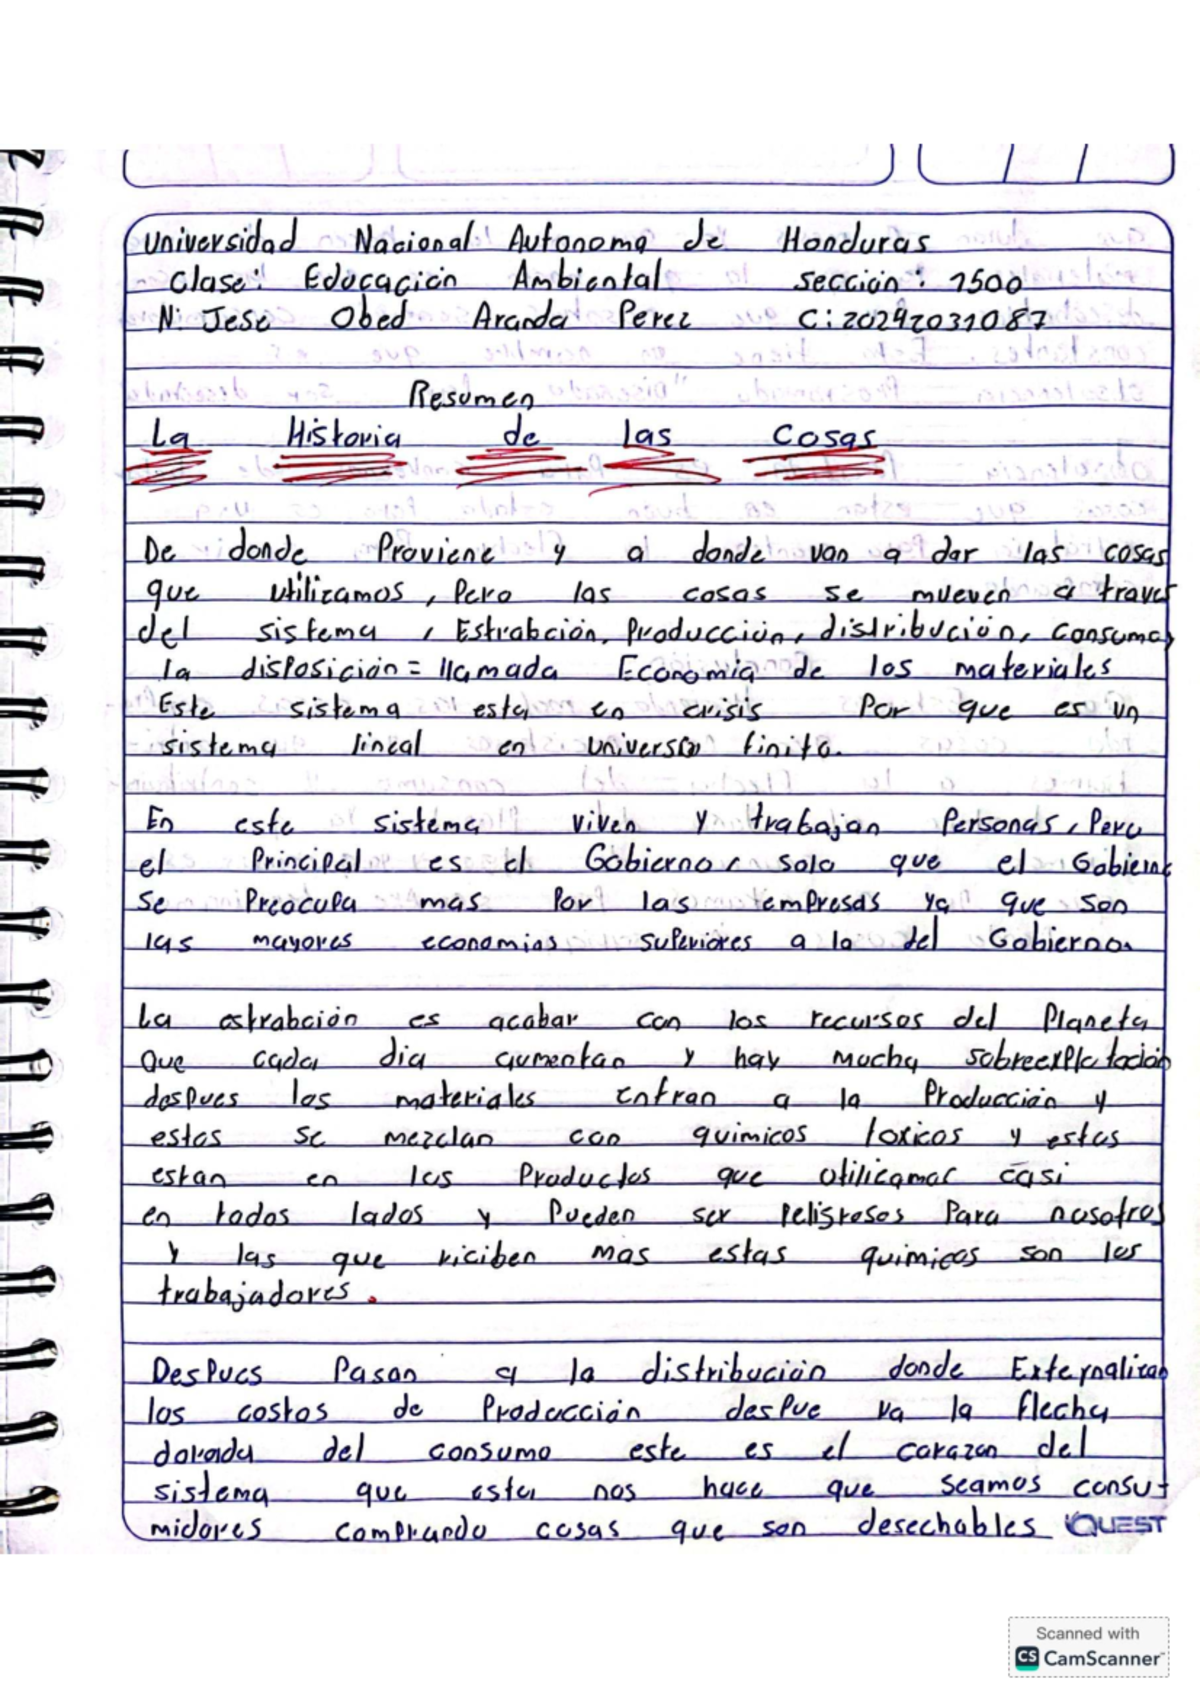 Universidad Nacional Autonoma de Honduras
Clase: Educación Ambiental sección: 1500
N: Jese Obed Aranda Perez C: 20242031087
Resumen
La Historia de las Cosas
De donde Proviene y a donde van a dar las cosas
que utilizamos, Pero las cosas se mueven a traves
del sistema, Estrabción, Producción, distribución, consumo,
la disposición = llamada Economia de los materiales
Este sistema esta en crisis Por que es un
sistema lineal en universo finito.
En este sistema viven y trabajan Personas, Pero
el Principal es el Gobierno, solo que el Gobierno
se Preocupa mas Por las empresas ya que son
las mayores economias superiores a la del Gobierno.
La estrabción es acabar con los recursos del Planeta
Que cada dia aumentan y hay mucha sobreexplotación
despues los materiales entran a la Producción y
estos se mezclan con quimicos toxicos y estos
estan en los Productos que utilicamos casi
en todos lados y Pueden ser Peligrosos Para nosotros
y las que riciben mas estas quimicos son los
trabajadores.
Despues Pasan a la distribución donde Externalizan
los costos de Producción despue va la flecha
dorada del consumo este es el corazon del
sistema que esta nos hace que seamos consu-
midores comprando cosas que son desechables
QUEST
Scanned with
CS CamScanner